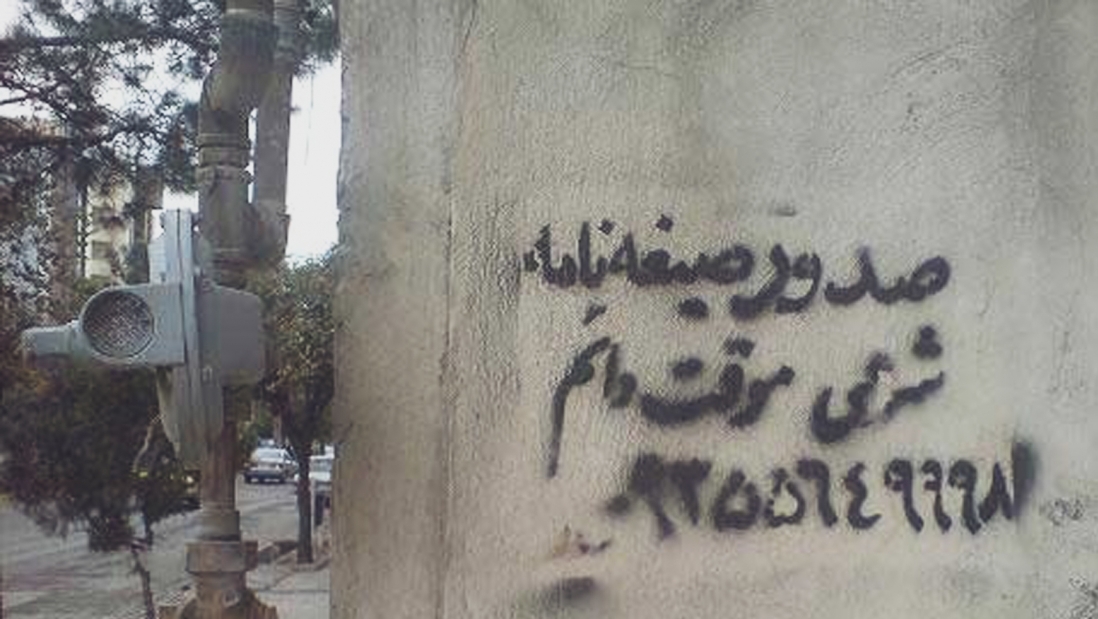 صدور صیغه نامه
شرعی موقت دائم
۰۹۳۵۵۶۴۹۹۹۸